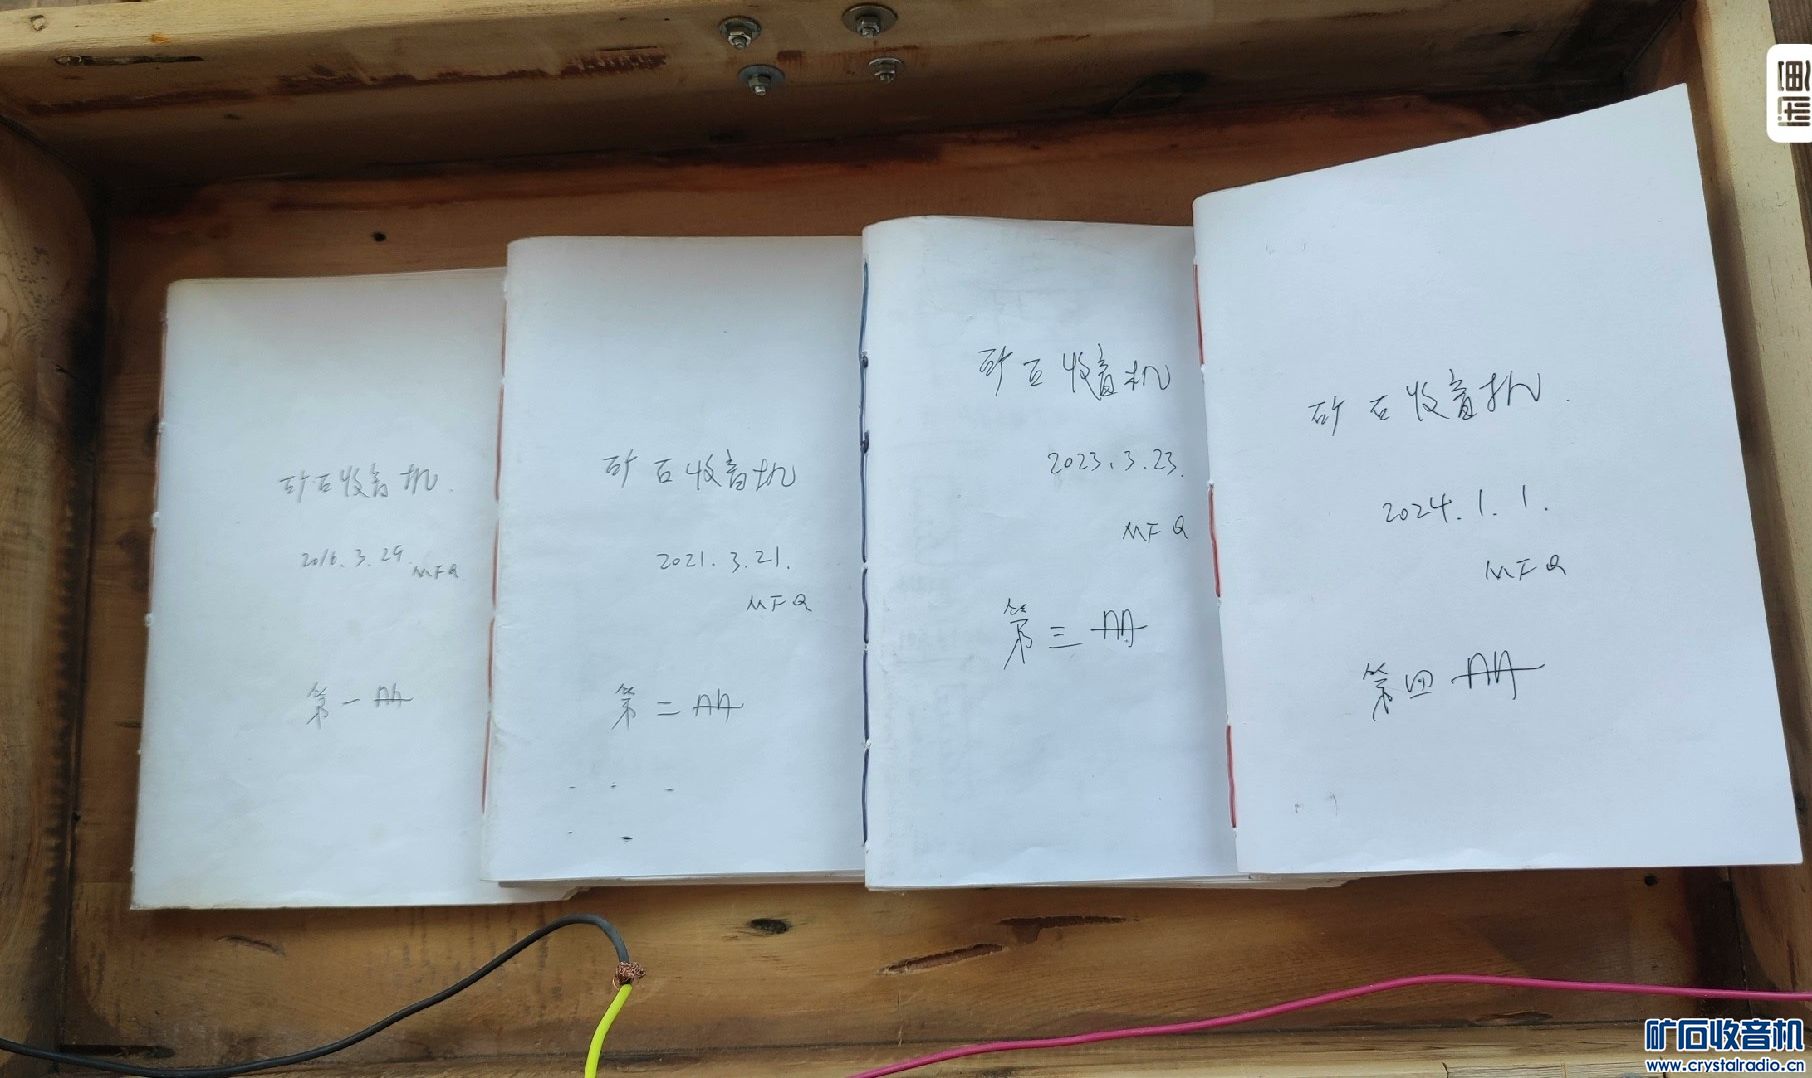 矿石收音机.
2016.3.29.
MFQ
第一册
矿石收音机
2021.3.21.
MFQ
第二册
矿石收音机
2023.3.23.
MFQ
第三册
矿石收音机.
2024.1.1.
MFQ
第四册
矿石收音机
www.crystalradio.cn